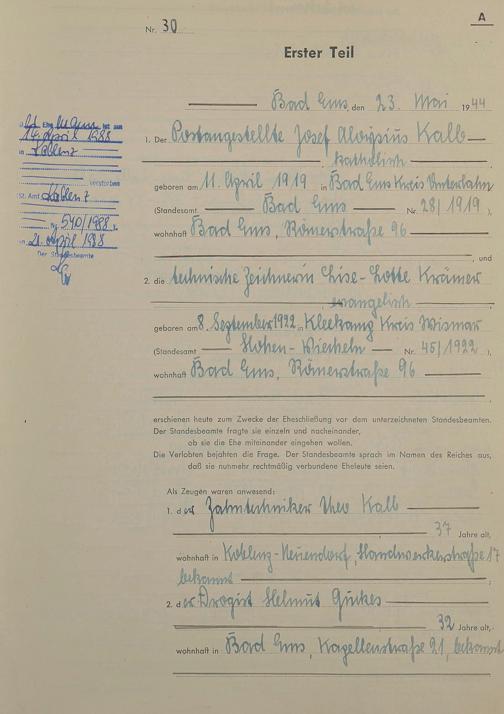 A
Nr. 30
Erster Teil
Bad Ems, den 23. Mai 1944
1. Der Postangestellte Josef Aloysius Kalb
, katholisch
geboren am 11. April 1919 in Bad Ems Kreis Unterlahn
(Standesamt Bad Ems Nr. 28/1919),
wohnhaft Bad Ems, Römerstraße 96
, und
2. die technische Zeichnerin Lise-Lotte Krämer
evangelisch
geboren am 8. September 1922 in Kleekamp Kreis Wismar
(Standesamt Hohen-Viecheln Nr. 45/1922),
wohnhaft Bad Ems, Römerstraße 96
erschienen heute zum Zwecke der Eheschließung vor dem unterzeichneten Standesbeamten.
Der Standesbeamte fragte sie einzeln und nacheinander,
ob sie die Ehe miteinander eingehen wollen.
Die Verlobten bejahten die Frage. Der Standesbeamte sprach im Namen des Reiches aus,
daß sie nunmehr rechtmäßig verbundene Eheleute seien.
Als Zeugen waren anwesend:
1. der Zahntechniker Theo Kalb
37 Jahre alt,
wohnhaft in Koblenz-Neuendorf, Handwerkerstraße 17
bekannt
2. der Drogist Helmut
32 Jahre alt,
wohnhaft in Bad Ems, Kapellenstraße 21, bekannt
14. April 1988
in Koblenz
verstorben
St. Amt Koblenz
Nr. 540/1988).
21. April 1988
Der Standesbeamte